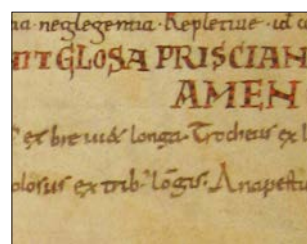 na·neglegentia·Repletiue·id
NIT GLOSA PRISCIAN
AMEN
ex breui & longa·Trocheus ex l
olosus ex trib·longis·Anapestu